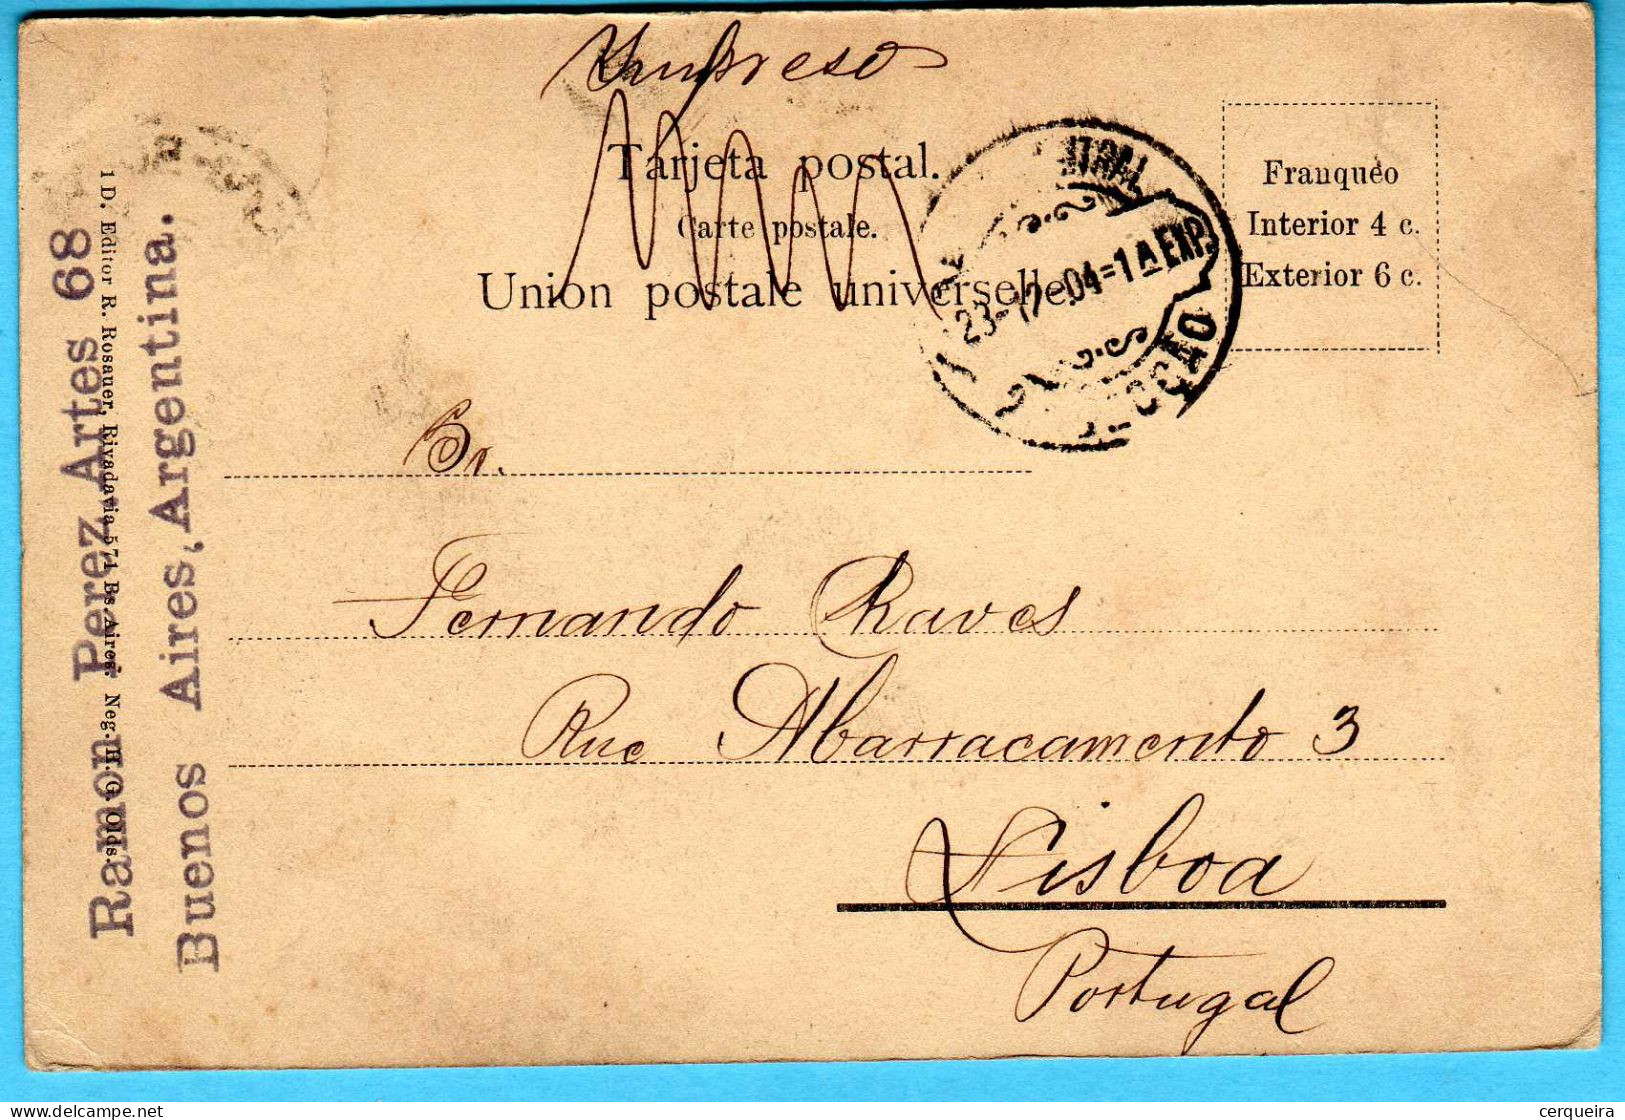 Impreso
Tarjeta postal.
Carte postale.
Union postale universelle.
23-12-04=1A EXP.
Franqueo
Interior 4 c.
Exterior 6 c.
Sr.
Fernando Chaves
Rue Abarracamento 3
Lisboa
Portugal
Ramon Perez, Artes 68
Buenos Aires, Argentina.
1 D. Editor R. Rosauer, Rivadavia 571 Bs. Aires. Neg. H. G. Olds.
cerqueira